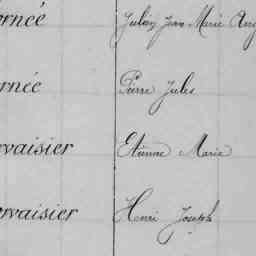 rnée Julien Jean Marie Ang
rnée Pierre Jules
rvaisier Etienne Marie
rvaisier Henri Joseph